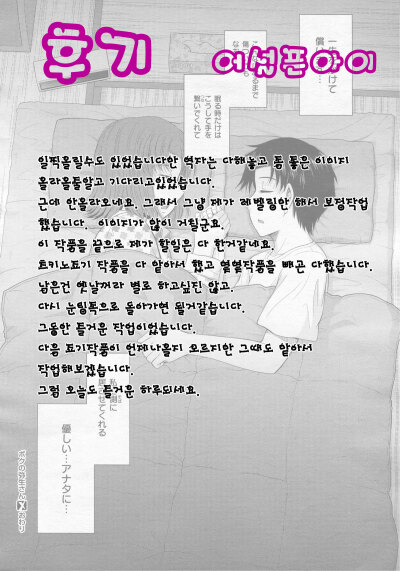 후기
어설픈아이
일찍올릴수도 있었습니다만 역자는 다해놓고 좀 좋은 이미지
올라올줄알고 기다리고있었습니다.
근데 안올라오네요. 그래서 그냥 제가 레벨링만 해서 보정작업
했습니다. 이미지가 많이 거칠군요.
이 작품을 끝으로 제가 할일은 다 한거같네요.
토키노표기 작품을 다 맡아서 했고 몇몇작품을 빼곤 다했습니다.
남은건 옛날꺼라 별로 하고싶진 않고.
다시 눈팅쪽으로 돌아가면 될거같습니다.
그동안 즐거운 작업이었습니다.
다음 표기작품이 언제나올지 모르지만 그때도 맡아서
작업해보겠습니다.
그럼 오늘도 즐거운 하루되세요.
眠る時だけは
こうして手を
繋いでくれて
優しい…アナタに…